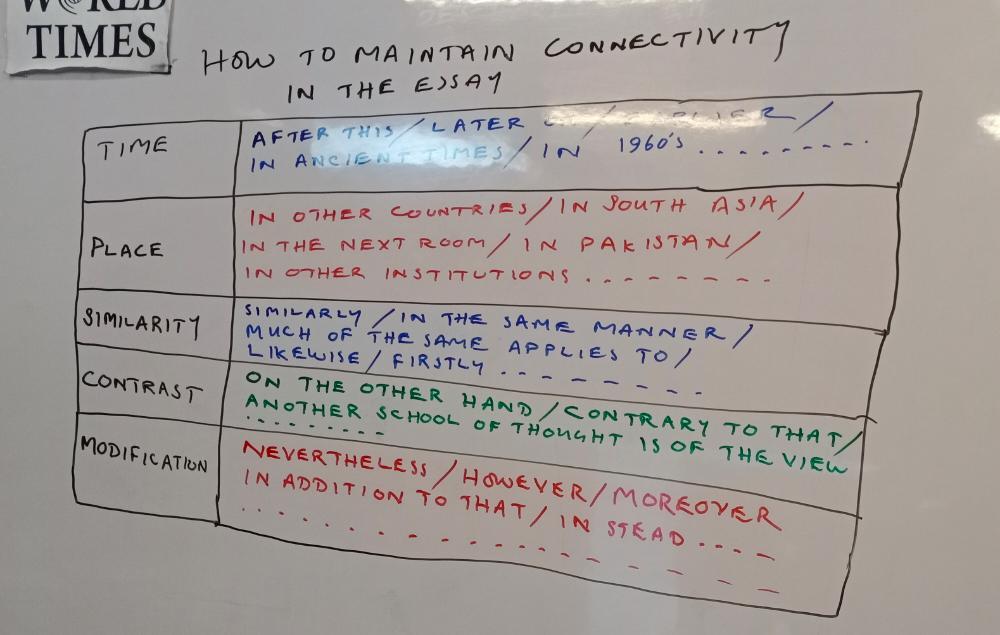 WORLD
TIMES
HOW TO MAINTAIN CONNECTIVITY
IN THE ESSAY
TIME
AFTER THIS / LATER / /
IN ANCIENT TIMES / IN 1960's .........
PLACE
IN OTHER COUNTRIES / IN SOUTH ASIA /
IN THE NEXT ROOM / IN PAKISTAN /
IN OTHER INSTITUTIONS ........
SIMILARITY
SIMILARLY / IN THE SAME MANNER /
MUCH OF THE SAME APPLIES TO /
LIKEWISE / FIRSTLY ........
CONTRAST
ON THE OTHER HAND / CONTRARY TO THAT /
ANOTHER SCHOOL OF THOUGHT IS OF THE VIEW
........
MODIFICATION
NEVERTHELESS / HOWEVER / MOREOVER
IN ADDITION TO THAT / IN STEAD .....
................